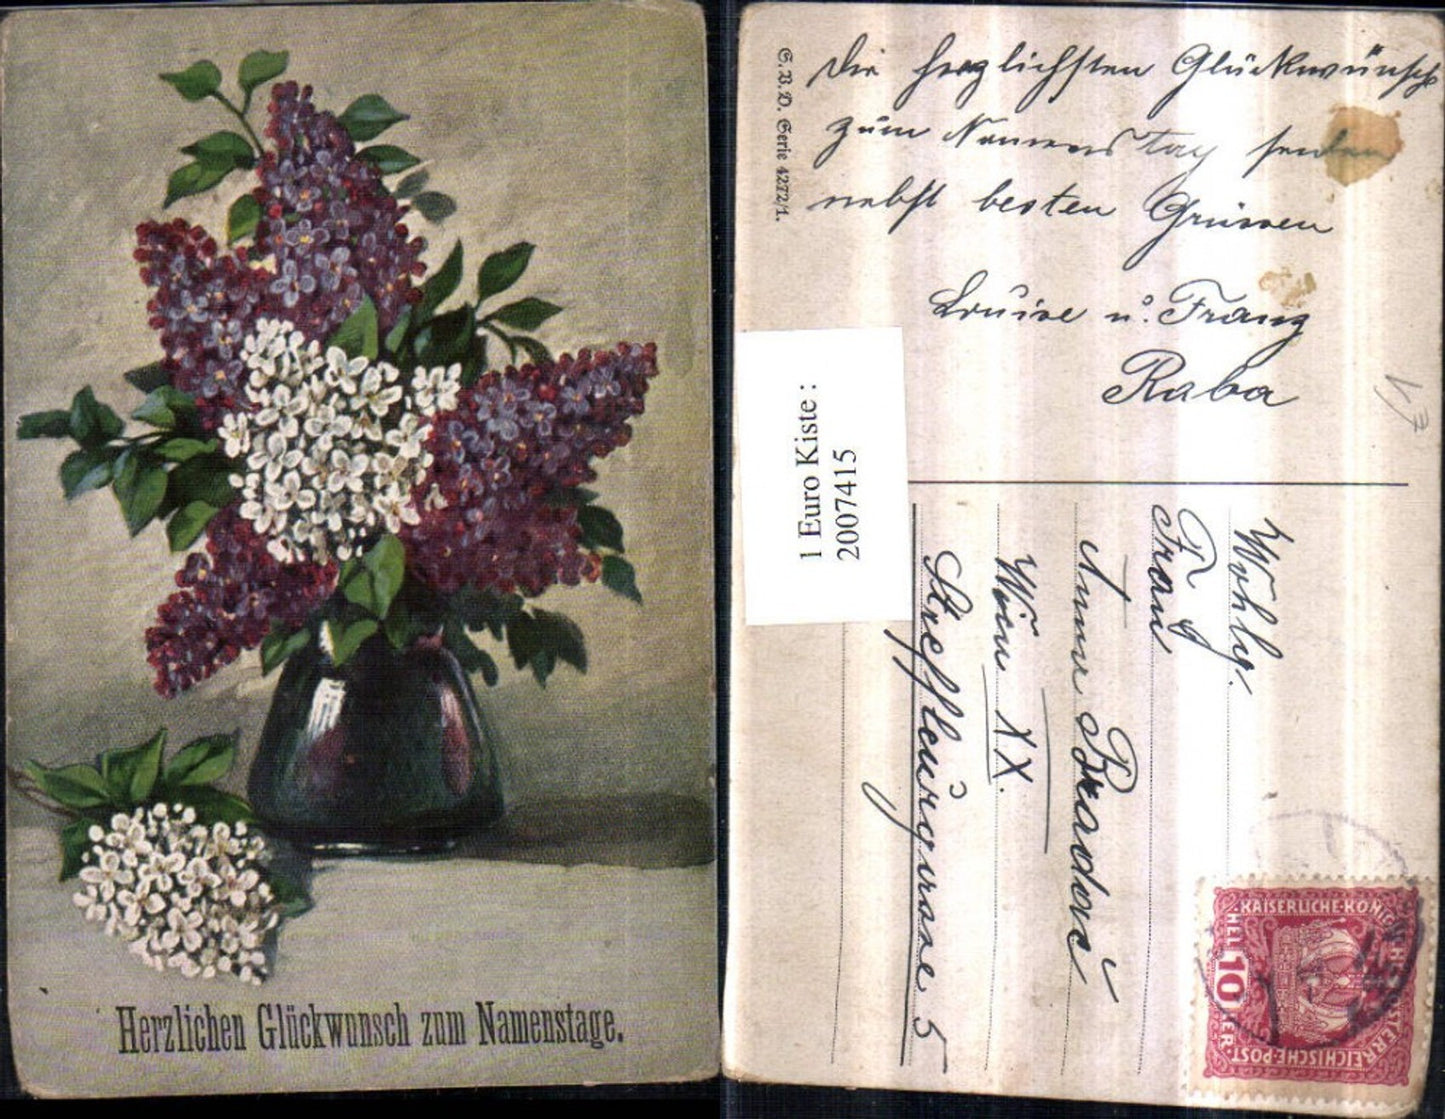 Herzlichen Glückwunsch zum Namenstage.
S. B. D. Serie 4272/1.
Die herzlichsten Glückwünsche
zum Namens Tag senden
nebst besten Grüssen
Louise u. Franz
Raba
1 Euro Kiste :
2007415
Wohlg.
Frau
Anna
Wien XX.
Streffleurgasse 5
KAISERLICHE·KÖNIGLICHE
ÖSTERREICHISCHE·POST
HELLER
10